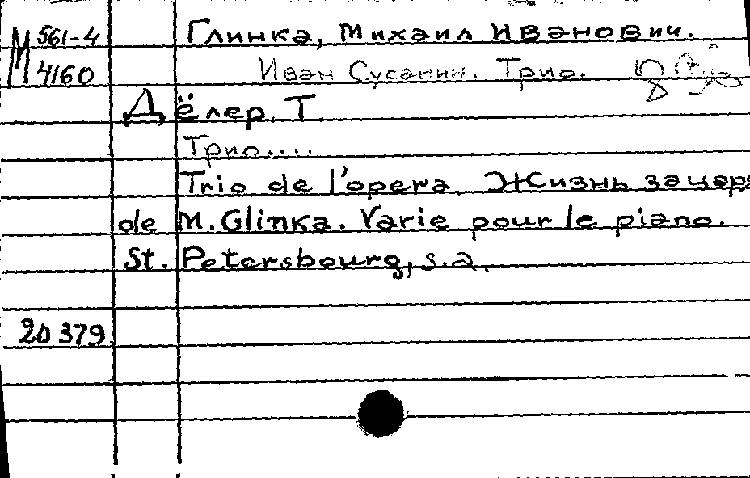 М 561-4 Глинка, Михаил Иванович.
М 4160 Иван Сусанин. Трио.
Дёлер, Т.
Трио....
Trio de l'opera. Жизнь за царя
de M. Glinka. Varie pour le piano.
St. Petersbourg, s.a.
20379